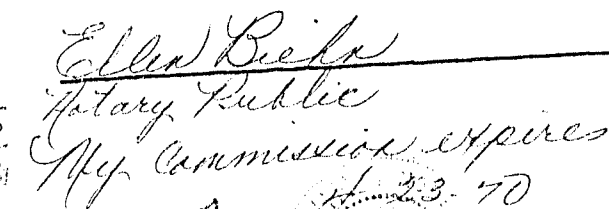 Ellen Biehn
Notary Public
My Commission expires
4-23-70